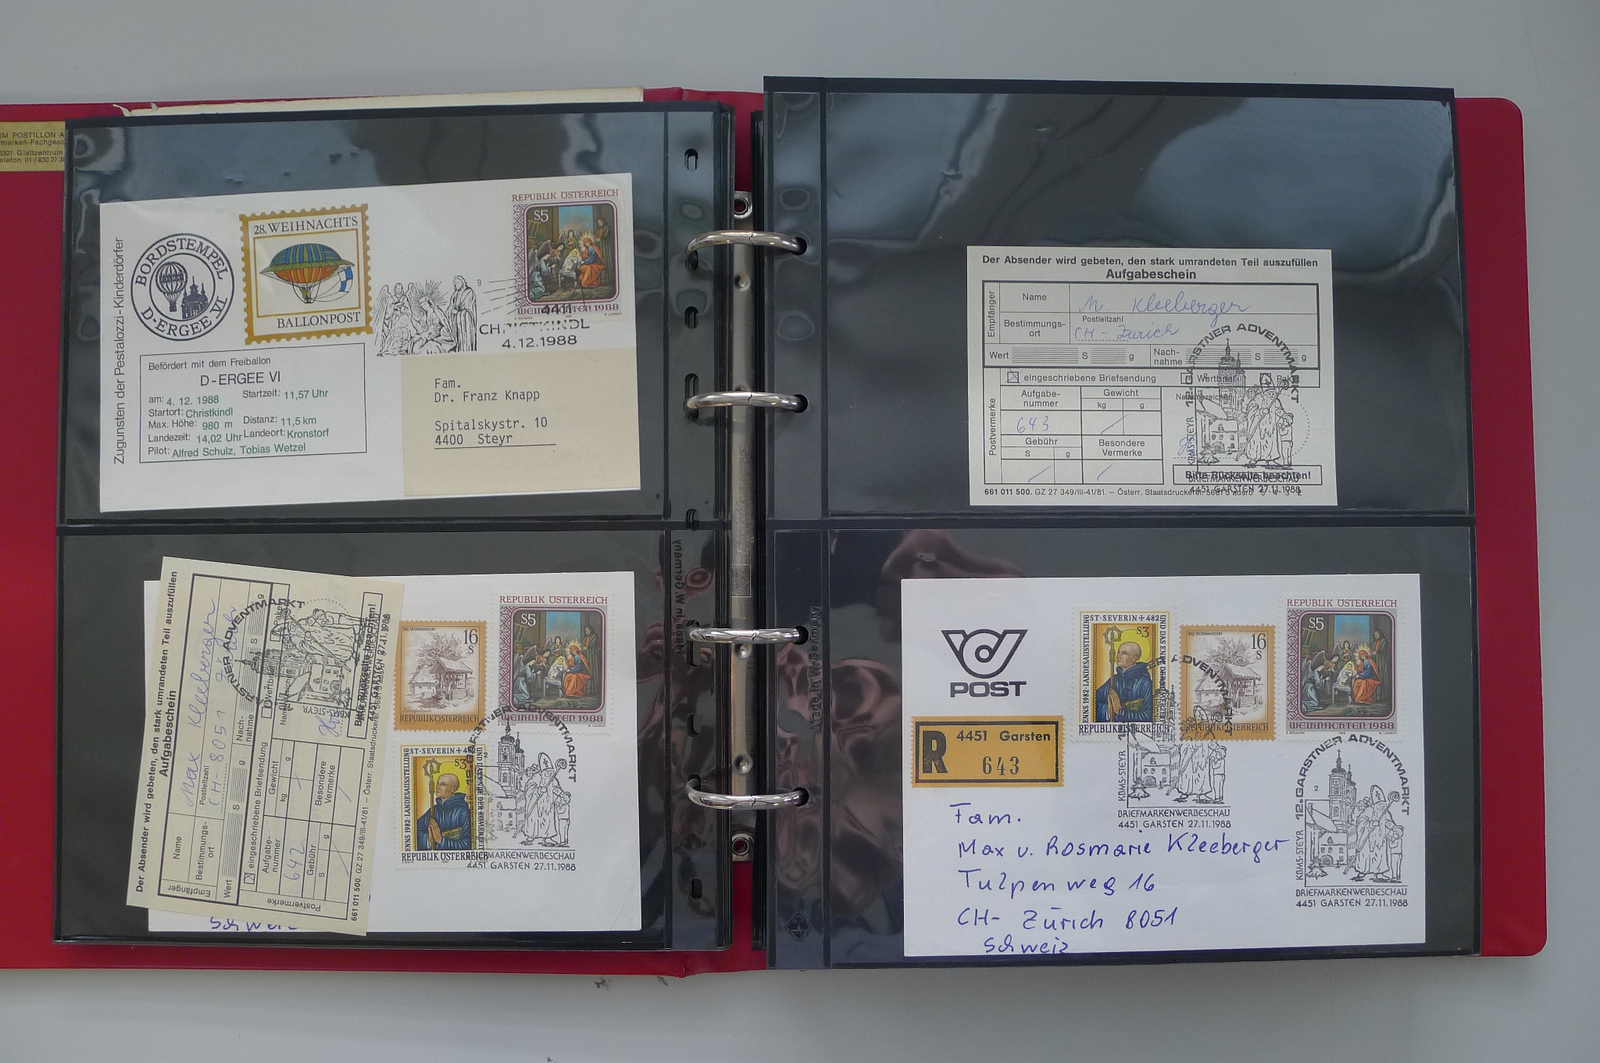 REPUBLIK ÖSTERREICH
S5
WEIHNACHTEN 1988
28. WEIHNACHTS
BALLONPOST
BORDSTEMPEL
D-ERGEE VI
Zugunsten der Pestalozzi-Kinderdörfer
4411
CHRISTKINDL
4.12.1988
Befördert mit dem Freiballon
D-ERGEE VI
am: 4. 12. 1988 Startzeit: 11,57 Uhr
Startort: Christkindl
Max. Höhe: 980 m Distanz: 11,5 km
Landezeit: 14,02 Uhr Landeort: Kronstorf
Pilot: Alfred Schulz, Tobias Wetzel
Fam.
Dr. Franz Knapp
Spitalskystr. 10
4400 Steyr
Der Absender wird gebeten, den stark umrandeten Teil auszufüllen
Aufgabeschein
Empfänger
Name
Max Kleeberger
Bestimmungs-
ort
Postleitzahl
CH-8051
Wert S g
Nach-
nahme S g
eingeschriebene Briefsendung
Postvermerke
Aufgabe-
nummer
642
Gewicht
kg g
Gebühr
S g
Besondere
Vermerke
Bitte Rückseite beachten!
661 011 500. GZ 27 349/III-41/81 – Österr. Staatsdruckerei
4451 GARSTEN 27.11.1988
16
S
REPUBLIK ÖSTERREICH
REPUBLIK ÖSTERREICH
S5
WEIHNACHTEN 1988
ST·SEVERIN+482
S3
ENNS 1982·LANDESAUSSTELLUNG
REPUBLIK ÖSTERREICH
GARSTNER ADVENTMARKT
BRIEFMARKENWERBESCHAU
4451 GARSTEN 27.11.1988
Schweiz
Der Absender wird gebeten, den stark umrandeten Teil auszufüllen
Aufgabeschein
Empfänger
Name
M Kleeberger
Bestimmungs-
ort
Postleitzahl
CH-Zürich
Wert S g
Nach-
nahme S g
eingeschriebene Briefsendung
Postvermerke
Aufgabe-
nummer
643
Gewicht
kg g
Gebühr
S g
Besondere
Vermerke
12. GARSTNER ADVENTMARKT
KDMS-STEYR
Bitte Rückseite beachten!
BRIEFMARKENWERBESCHAU
4451 GARSTEN 27.11.1988
661 011 500. GZ 27 349/III-41/81. – Österr. Staatsdruckerei
POST
R
4451 Garsten
643
ST·SEVERIN+482
S3
ENNS 1982·LANDESAUSSTELLUNG
REPUBLIK ÖSTERREICH
16
S
REPUBLIK ÖSTERREICH
REPUBLIK ÖSTERREICH
S5
WEIHNACHTEN 1988
KDMS-STEYR
BRIEFMARKENWERBESCHAU
4451 GARSTEN 27.11.1988
KDMS-STEYR 12. GARSTNER ADVENTMARKT
BRIEFMARKENWERBESCHAU
4451 GARSTEN 27.11.1988
Fam.
Max u. Rosmarie Kleeberger
Tulpenweg 16
CH- Zürich 8051
Schweiz